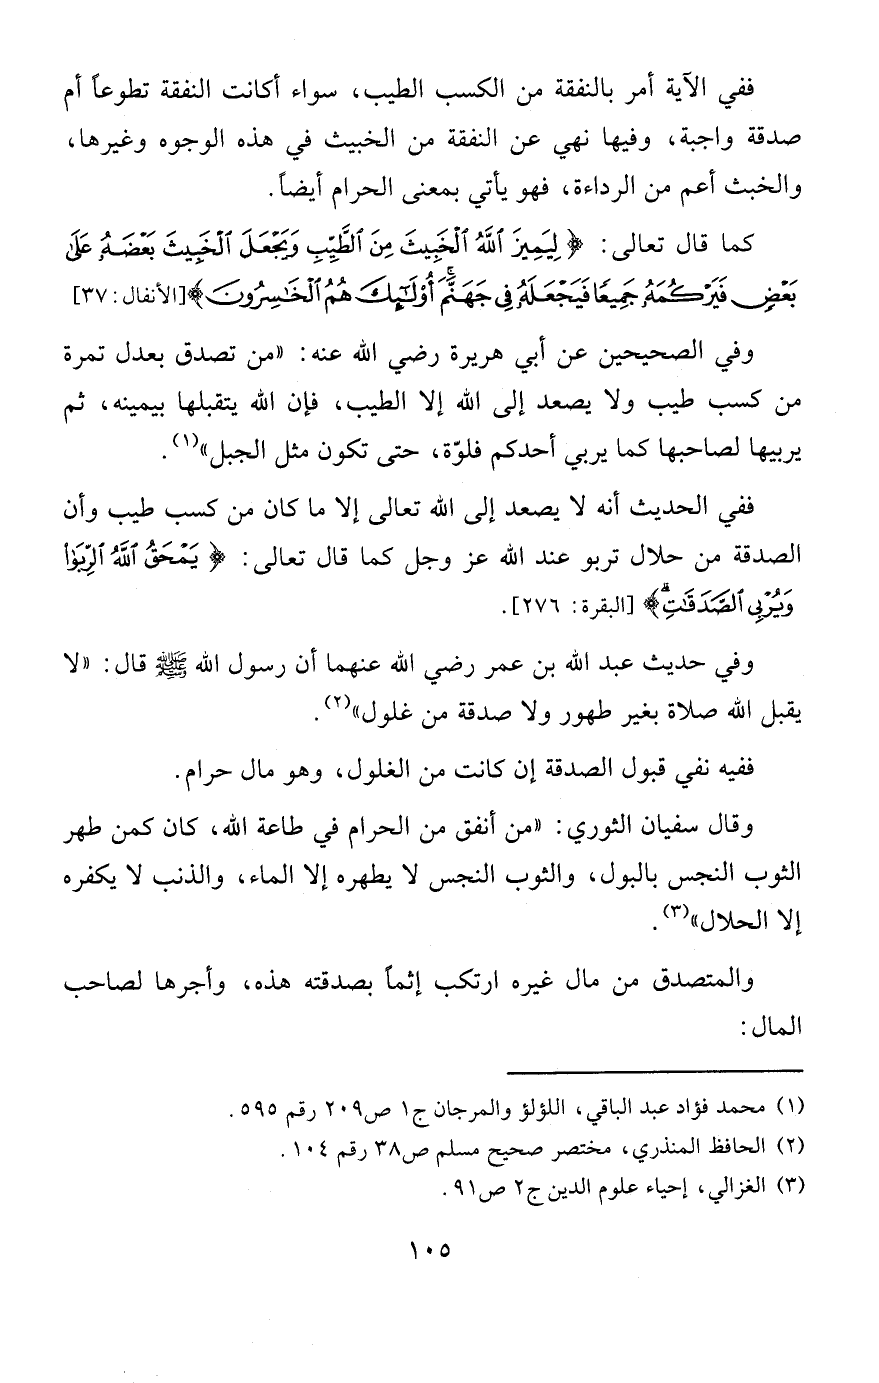 ففي الآية أمر بالنفقة من الكسب الطيب، سواء أكانت النفقة تطوعاً أم
صدقة واجبة، وفيها نهي عن النفقة من الخبيث في هذه الوجوه وغيرها،
والخبث أعم من الرداءة، فهو يأتي بمعنى الحرام أيضاً.
كما قال تعالى: ﴿لِيَمِيزَ ٱللَّهُ ٱلْخَبِيثَ مِنَ ٱلطَّيِّبِ وَيَجْعَلَ ٱلْخَبِيثَ بَعْضَهُۥ عَلَىٰ
بَعْضٍ فَيَرْكُمَهُۥ جَمِيعًا فَيَجْعَلَهُۥ فِى جَهَنَّمَ ۚ أُو۟لَٰٓئِكَ هُمُ ٱلْخَٰسِرُونَ﴾ [الأنفال: ٣٧]
وفي الصحيحين عن أبي هريرة رضي الله عنه: «من تصدق بعدل تمرة
من كسب طيب ولا يصعد إلى الله إلا الطيب، فإن الله يتقبلها بيمينه، ثم
يربيها لصاحبها كما يربي أحدكم فلوّة، حتى تكون مثل الجبل»(١).
ففي الحديث أنه لا يصعد إلى الله تعالى إلا ما كان من كسب طيب وأن
الصدقة من حلال تربو عند الله عز وجل كما قال تعالى: ﴿يَمْحَقُ ٱللَّهُ ٱلرِّبَوٰا۟
وَيُرْبِى ٱلصَّدَقَٰتِ ۗ﴾ [البقرة: ٢٧٦].
وفي حديث عبد الله بن عمر رضي الله عنهما أن رسول الله ﷺ قال: «لا
يقبل الله صلاة بغير طهور ولا صدقة من غلول»(٢).
ففيه نفي قبول الصدقة إن كانت من الغلول، وهو مال حرام.
وقال سفيان الثوري: «من أنفق من الحرام في طاعة الله، كان كمن طهر
الثوب النجس بالبول، والثوب النجس لا يطهره إلا الماء، والذنب لا يكفره
إلا الحلال»(٣).
والمتصدق من مال غيره ارتكب إثماً بصدقته هذه، وأجرها لصاحب
المال:
(١) محمد فؤاد عبد الباقي، اللؤلؤ والمرجان ج١ ص٢٠٩ رقم ٥٩٥.
(٢) الحافظ المنذري، مختصر صحيح مسلم ص٣٨ رقم ١٠٤.
(٣) الغزالي، إحياء علوم الدين ج٢ ص٩١.
١٠٥